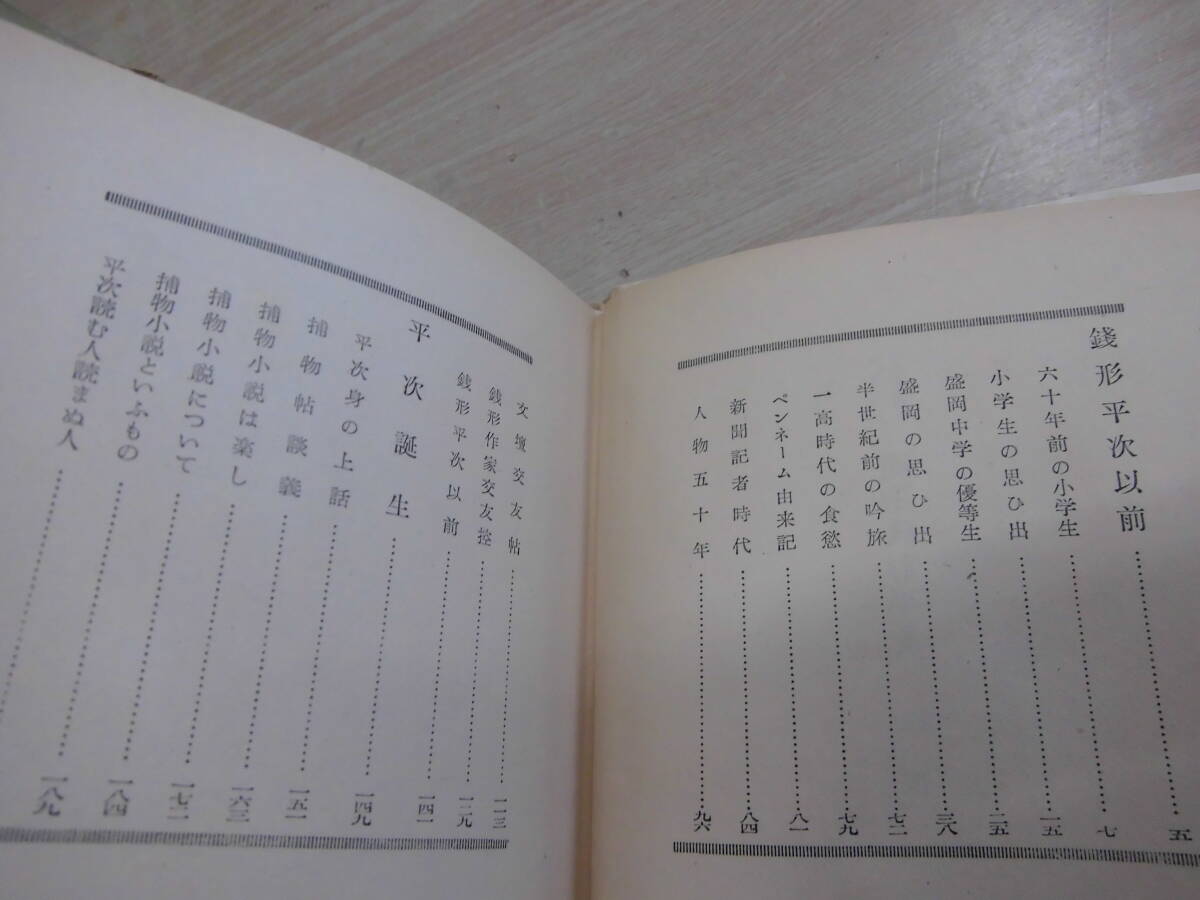 ……五
銭形平次以前
六十年前の小学生……七
小学生の思ひ出……一五
盛岡中学の優等生……二五
盛岡の思ひ出……三八
半世紀前の吟旅……七二
一高時代の食慾……七九
ペンネーム由来記……八一
新聞記者時代……八四
人物五十年……九六
文壇交友帖……一一三
銭形作家交友控……一二九
銭形平次以前……一四一
平次誕生
平次身の上話……一四九
捕物帖談義……一五一
捕物小説は楽し……一六三
捕物小説について……一七二
捕物小説といふもの……一八四
平次読む人読まぬ人……一八九